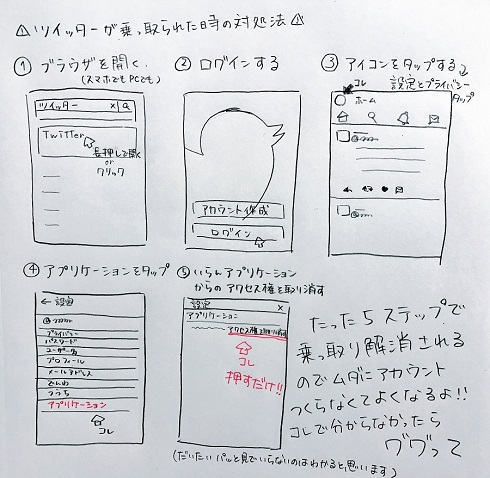 ⚠ツイッターが乗っ取られた時の対処法⚠
① ブラウザを開く.
(スマホでもPCでも)
ツイッター ×
Twitter
長押しで開く
or
クリック
② ログインする
アカウント作成
ログイン
③ アイコンをタップする
設定とプライバシー
タップ
コレ
ホーム
④ アプリケーションをタップ
← 設定
プライバシー
パスワード
ユーザー名
プロフィール
メールアドレス
でんわ
つうち
アプリケーション
コレ
⑤ いらんアプリケーション
からのアクセス権を取り消す
設定 ×
アプリケーション
アクセス権を取り消す
コレ
押すだけ!!
(だいたいパッと見でいらないのはわかると思います)
たった5ステップで
乗っ取り解消される
のでムダにアカウント
つくらなくてよくなるよ!!
コレで分からなかったら
ググって